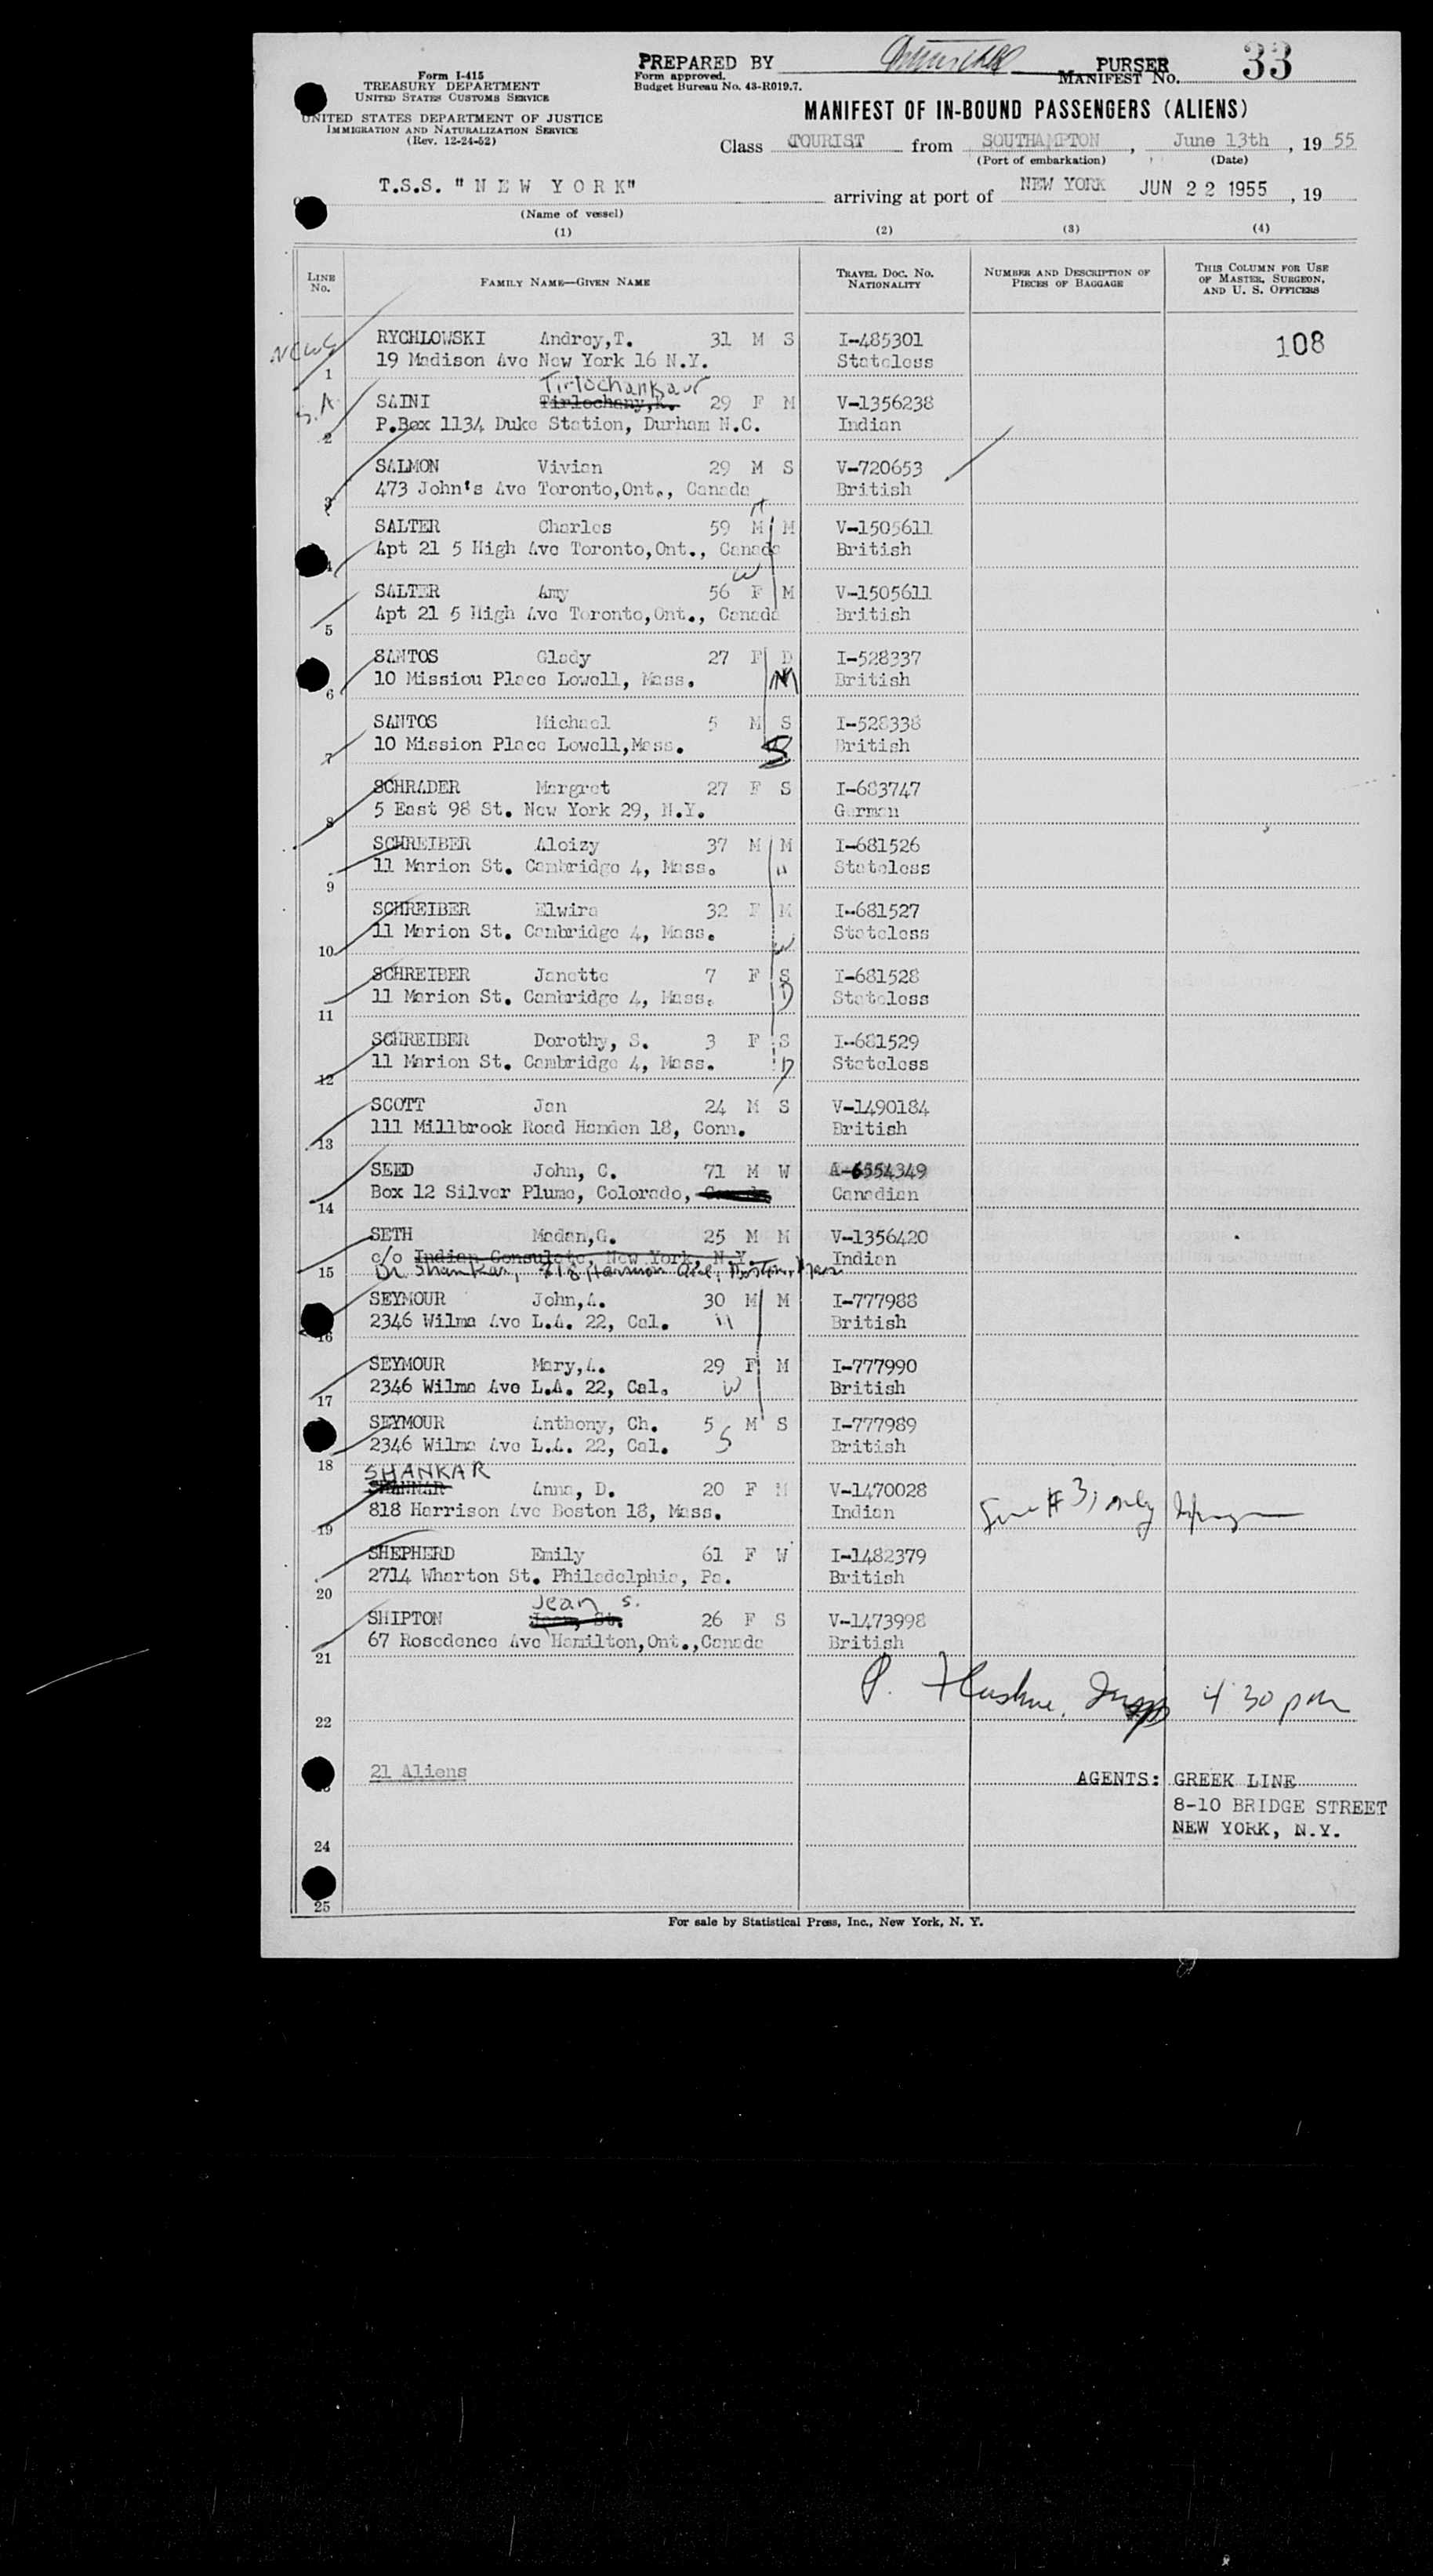 PREPARED BY PURSER
Form I-415
TREASURY DEPARTMENT
UNITED STATES CUSTOMS SERVICE
UNITED STATES DEPARTMENT OF JUSTICE
IMMIGRATION AND NATURALIZATION SERVICE
(Rev. 12-24-52)
Form approved.
Budget Bureau No. 43-R019.7.
MANIFEST No. 33
MANIFEST OF IN-BOUND PASSENGERS (ALIENS)
Class TOURIST from SOUTHAMPTON, June 13th, 19 55
(Port of embarkation) (Date)
T.S.S. "NEW YORK" arriving at port of NEW YORK JUN 22 1955, 19
(Name of vessel)
(1) (2) (3) (4)
LINE No. FAMILY NAME—GIVEN NAME TRAVEL DOC. No. NATIONALITY NUMBER AND DESCRIPTION OF PIECES OF BAGGAGE THIS COLUMN FOR USE OF MASTER, SURGEON, AND U. S. OFFICERS
RYCHLOWSKI Andrey,T. 31 M S I-485301 108
1 19 Madison Ave New York 16 N.Y. Stateless
Tirlochankaur
SAINI Tirlochany,K. 29 F M V-1356238
2 P.Box 1134 Duke Station, Durham N.C. Indian
SALMON Vivian 29 M S V-720653
3 473 John's Ave Toronto,Ont., Canada British
SALTER Charles 59 M M V-1505611
4 Apt 21 5 High Ave Toronto,Ont., Canada British
H
SALTER Amy 56 F M V-1505611
5 Apt 21 5 High Ave Toronto,Ont., Canada British
W
SANTOS Glady 27 F D I-528337
6 10 Missiou Place Lowell, Mass. M British
SANTOS Michael 5 M S I-528338
7 10 Mission Place Lowell,Mass. S British
SCHRADER Margret 27 F S I-683747
8 5 East 98 St. New York 29, N.Y. German
SCHREIBER Aloizy 37 M M I-681526
9 11 Marion St. Cambridge 4, Mass. H Stateless
SCHREIBER Elwira 32 F M I-681527
10 11 Marion St. Cambridge 4, Mass. W Stateless
SCHREIBER Janette 7 F S I-681528
11 11 Marion St. Cambridge 4, Mass. D Stateless
SCHREIBER Dorothy, S. 3 F S I-681529
12 11 Marion St. Cambridge 4, Mass. D Stateless
SCOTT Jan 24 M S V-1490184
13 111 Millbrook Road Hamden 18, Conn. British
SEED John, C. 71 M W A-6554349
14 Box 12 Silver Plume, Colorado, Canadian
SETH Madan,G. 25 M M V-1356420
15 c/o Indian Consulate, New York, N.Y. Indian
Dr Shankar, 818 Harrison Ave, Boston, Mass
SEYMOUR John,A. 30 M M I-777988
16 2346 Wilma Ave L.A. 22, Cal. H British
SEYMOUR Mary,A. 29 F M I-777990
17 2346 Wilma Ave L.A. 22, Cal. W British
SEYMOUR Anthony, Ch. 5 M S I-777989
18 2346 Wilma Ave L.A. 22, Cal. S British
SHANKAR
SHANNAR Anna, D. 20 F M V-1470028
19 818 Harrison Ave Boston 18, Mass. Indian Line # 3, only
SHEPHERD Emily 61 F W I-1482379
20 2714 Wharton St. Philadelphia, Pa. British
Jean S.
SHIPTON Jean, St. 26 F S V-1473998
21 67 Rosedence Ave Hamilton,Ont.,Canada British
22 4 30 pm
21 Aliens AGENTS: GREEK LINE
8-10 BRIDGE STREET
24 NEW YORK, N.Y.
25
For sale by Statistical Press, Inc., New York, N. Y.